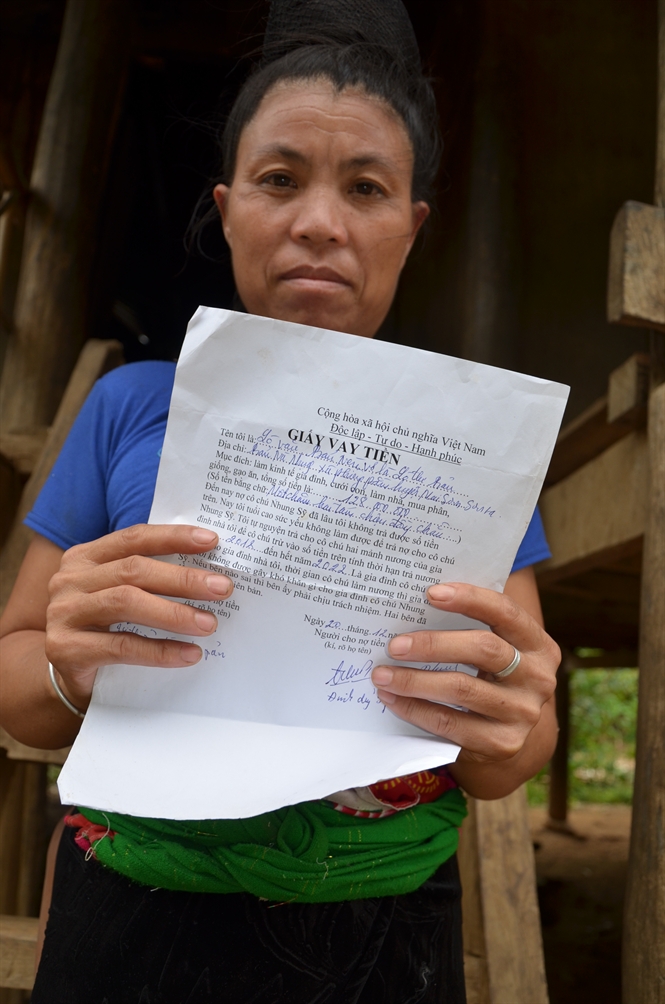 Cộng hòa xã hội chủ nghĩa Việt Nam
Độc lập - Tự do - Hạnh phúc
GIẤY VAY TIỀN
Tên tôi là:
Địa chỉ:
Mục đích: làm kinh tế gia đình, cưới vợ, làm nhà, mua phân,
giống, gạo ăn, tổng số tiền là 128.000.000
(Số tền bằng chữ
Đến nay nợ cô chú Nhung Sỹ đã lâu tôi không trả được số tiền
trên. Này tôi tuổi cao sức yếu không làm được để trả nợ cho cô chú
Nhung Sỹ. Tôi tự nguyện trả cho cô chú hai mảnh nương của gia
đình nhà tôi để cô chú trừ vào số tiền trên tính thời hạn trả nương
2012 đến hết năm 2022. Là gia đình cô chú
gia đình nhà tôi, thời gian cô chú làm nương thì gia
không được gây khó khăn gì cho gia đình cô chú Nhung
Sỹ. Nếu bên nào sai thì bên ấy phải chịu trách nhiệm. Hai bên đã
biên bản.
Ngày 20 tháng 12
nợ tiền
Người cho nợ tiền
(kí, rõ họ tên)
(kí, rõ họ tên)